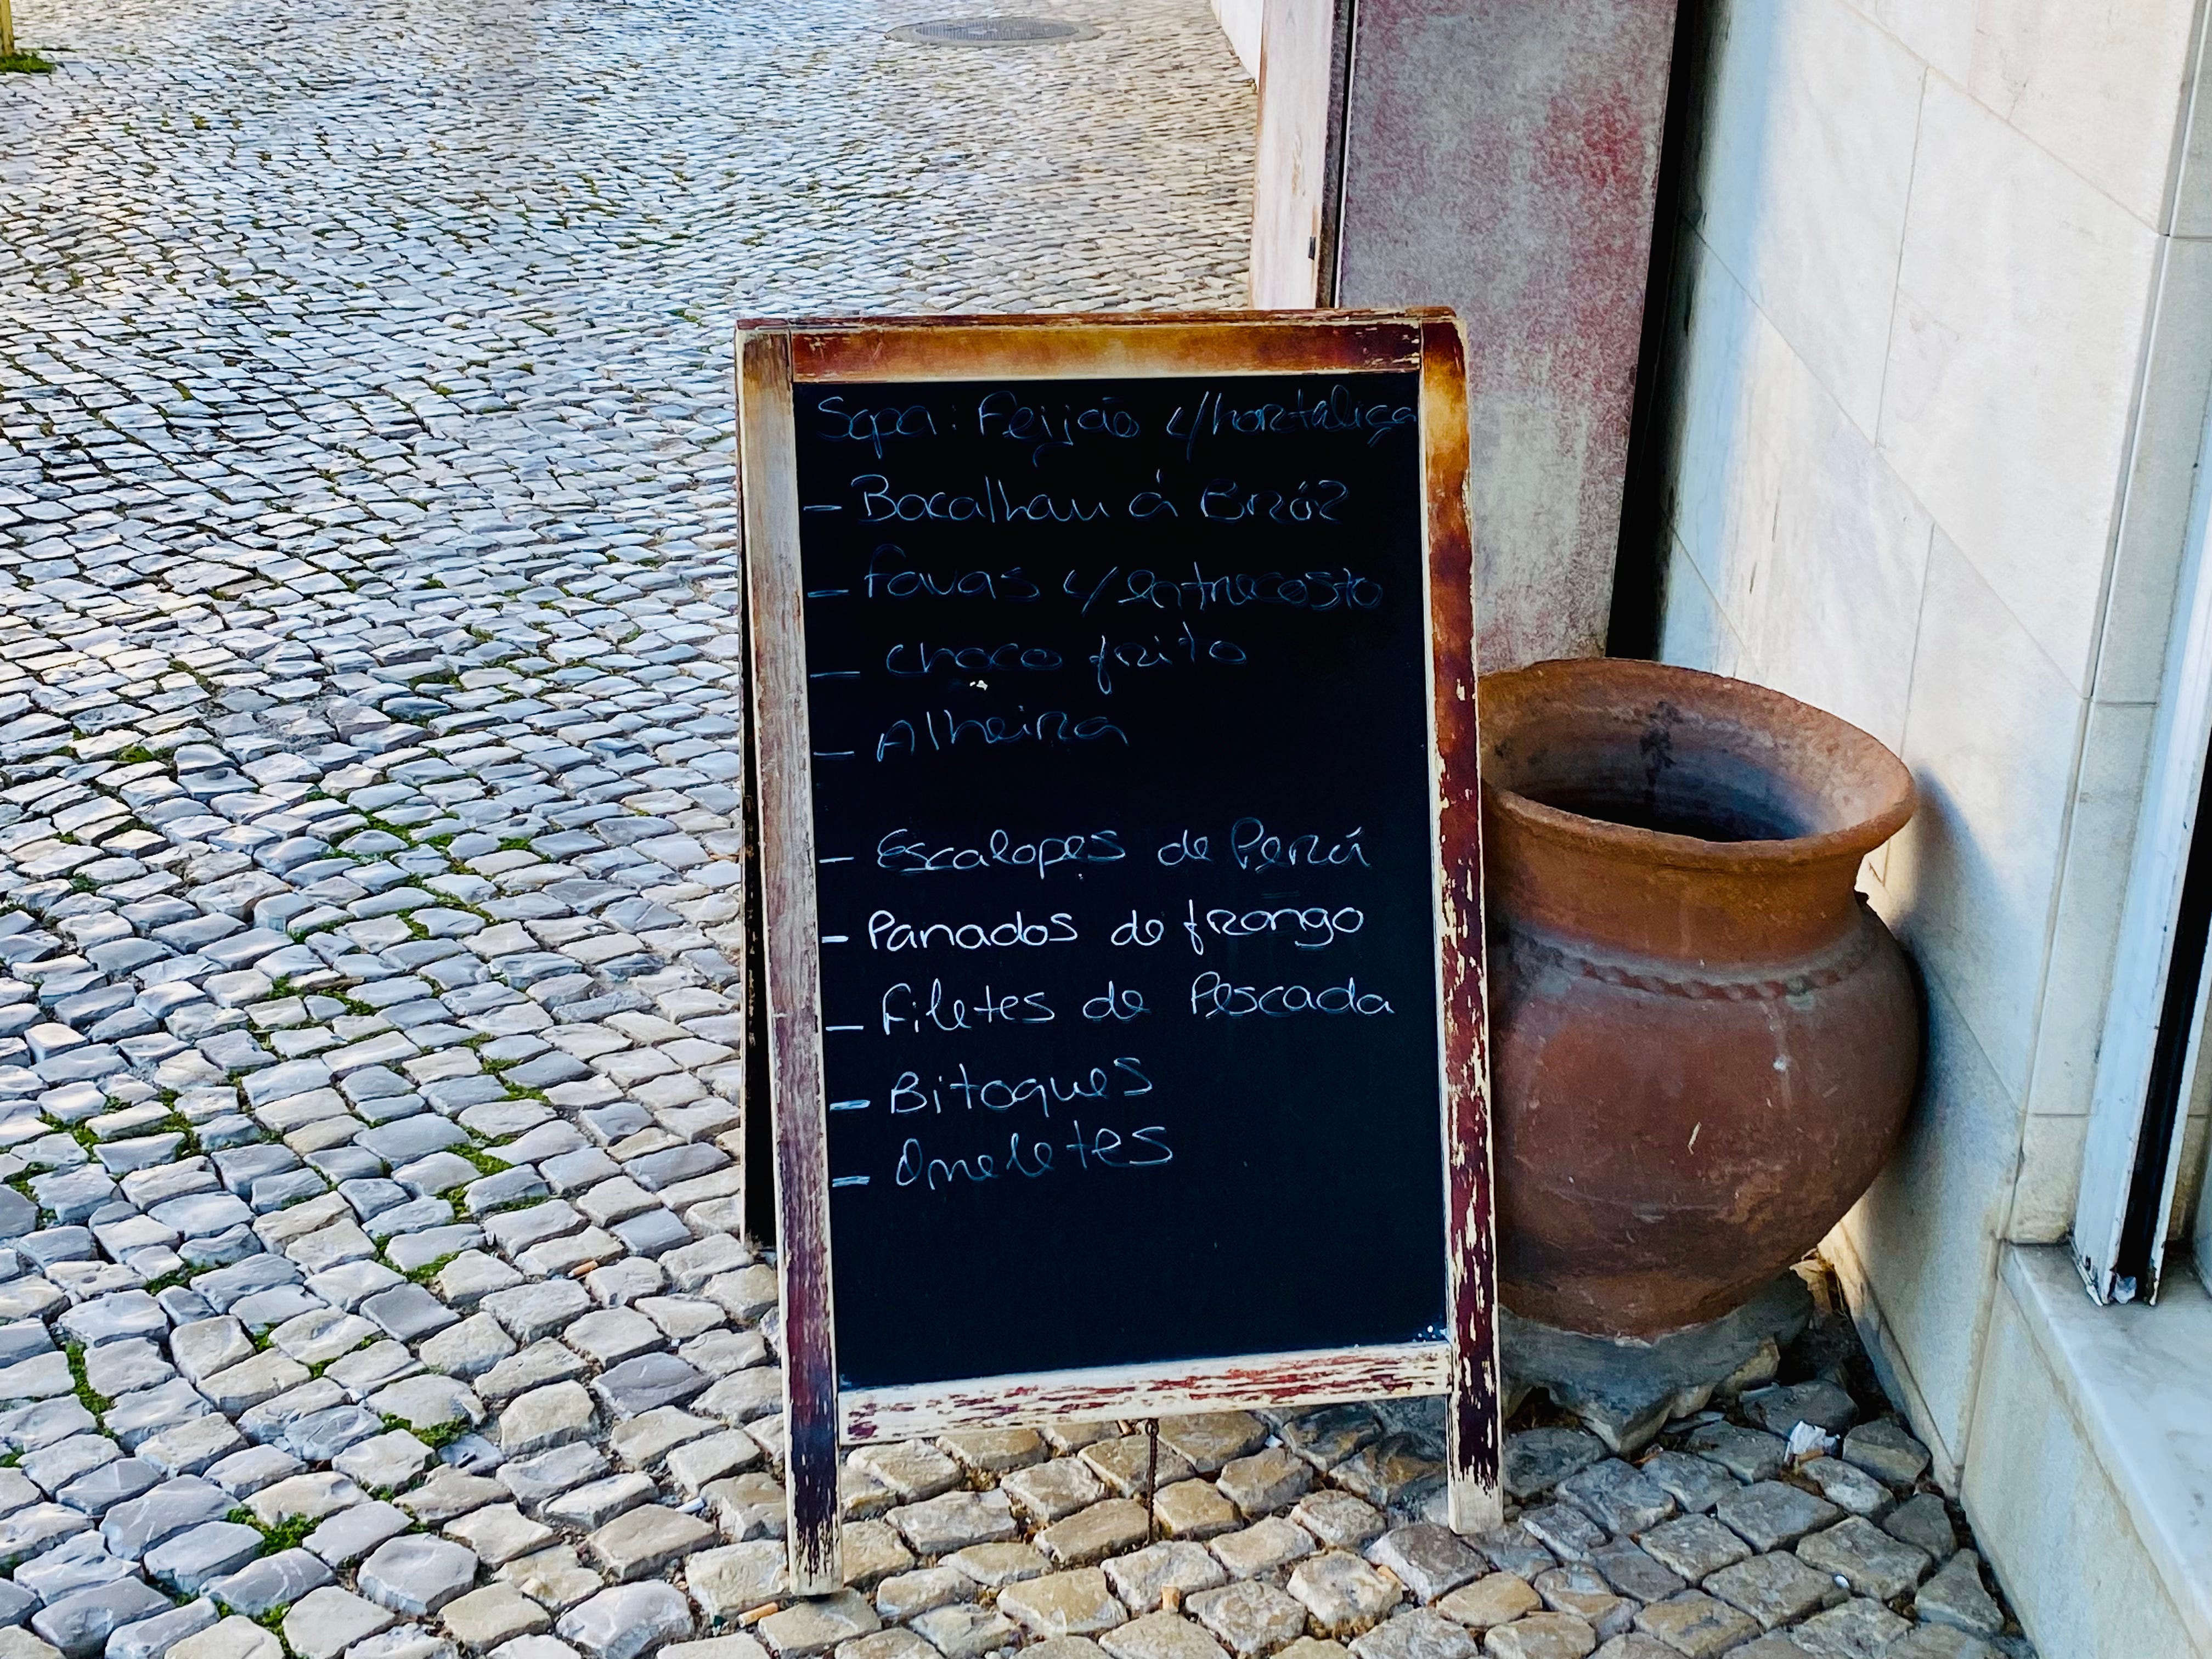 Sopa: Feijão c/hortaliça
- Bacalhau á Bráz
- Favas c/entrecosto
- Choco frito
- Alheira
- Escalopes de Perú
- Panados de frango
- Filetes de Pescada
- Bitoques
- Omeletes